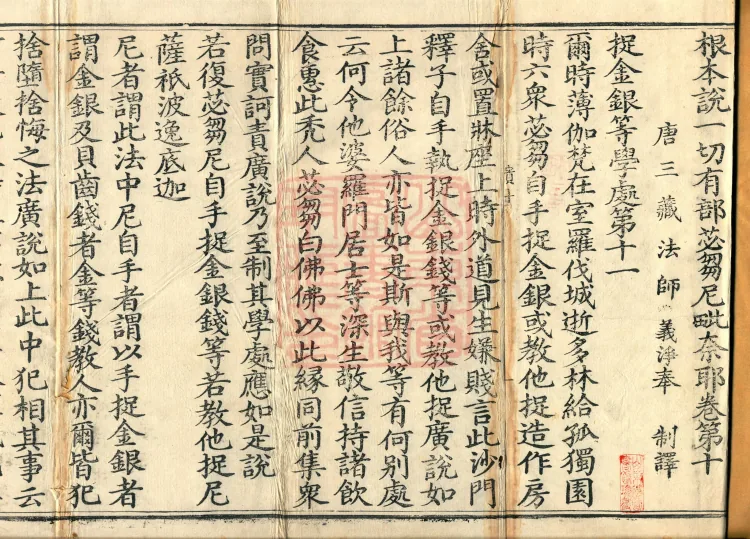 根本說一切有部苾芻尼毗奈耶卷第十
唐三藏法師義淨奉 制譯
捉金銀等學處第十一
爾時薄伽梵在室羅伐城逝多林給孤獨園
時六衆苾芻自手捉金銀或教他捉造作房
舍或置牀座上時外道見生嫌賤言此沙門
釋子自手執捉金銀錢等或教他捉廣說如
上諸餘俗人亦皆如是斯與我等有何別處
云何令他婆羅門居士等深生敬信持諸飲
食惠此禿人苾芻白佛佛以此緣同前集衆
問實訶責廣說乃至制其學處應如是說
若復苾芻尼自手捉金銀錢等若教他捉尼
薩祇波逸底迦
尼者謂此法中尼自手者謂以手捉金銀者
謂金銀及貝齒錢者金等錢教人亦爾皆犯
捨墮捨悔之法廣說如上此中犯相其事云